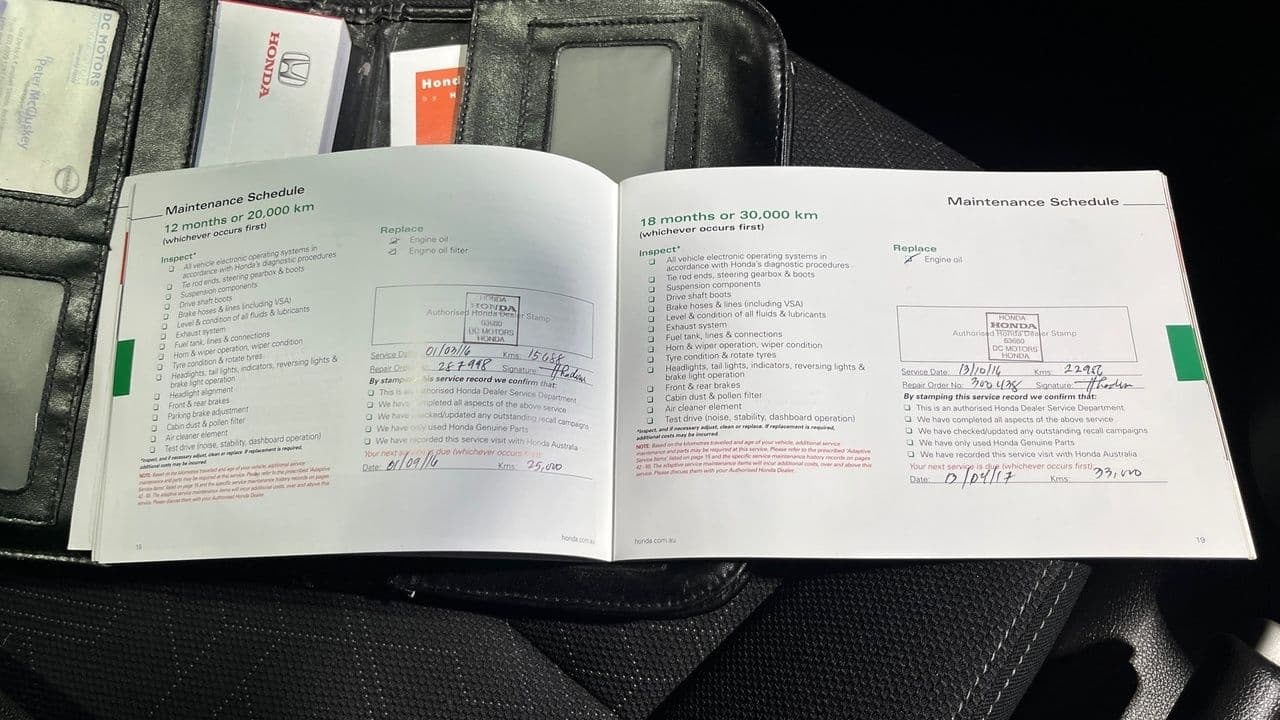 DC MOTORS
Peter McCluskey
HONDA
Hond
by H
Maintenance Schedule
12 months or 20,000 km
(whichever occurs first)
Inspect*
All vehicle electronic operating systems in
accordance with Honda's diagnostic procedures
Tie rod ends, steering gearbox & boots
Suspension components
Drive shaft boots
Brake hoses & lines (including VSA)
Level & condition of all fluids & lubricants
Exhaust system
Fuel tank, lines & connections
Horn & wiper operation, wiper condition
Tyre condition & rotate tyres
Headlights, tail lights, indicators, reversing lights &
brake light operation
Headlight alignment
Front & rear brakes
Parking brake adjustment
Cabin dust & pollen filter
Air cleaner element
Test drive (noise, stability, dashboard operation)
*Inspect, and if necessary adjust, clean or replace. If replacement is required,
additional costs may be incurred.
NOTE: Based on the kilometres travelled and age of your vehicle, additional service
maintenance and parts may be required at this service. Please refer to the prescribed 'Adaptive
Service Items' listed on page 15 and the specific service maintenance history records on pages
42 - 85. The adaptive service maintenance items will incur additional costs, over and above this
service. Please discuss them with your Authorised Honda Dealer.
Replace
Engine oil
Engine oil filter
Authorised Honda Dealer Stamp
HONDA
HONDA
63680
DC MOTORS
HONDA
Service Da 01/03/16 Kms: 15688
Repair Orde 287998 Signature:
By stampin his service record we confirm that:
This is an thorised Honda Dealer Service Department
We have mpleted all aspects of the above service
We have ecked/updated any outstanding recall campaigns
We have only used Honda Genuine Parts
We have recorded this service visit with Honda Australia
Your next service is due (whichever occurs first)
Date: 01/09/16 Kms: 25,000
honda.com.au
Maintenance Schedule
18 months or 30,000 km
(whichever occurs first)
Inspect*
All vehicle electronic operating systems in
accordance with Honda's diagnostic procedures
Tie rod ends, steering gearbox & boots
Suspension components
Drive shaft boots
Brake hoses & lines (including VSA)
Level & condition of all fluids & lubricants
Exhaust system
Fuel tank, lines & connections
Horn & wiper operation, wiper condition
Tyre condition & rotate tyres
Headlights, tail lights, indicators, reversing lights &
brake light operation
Front & rear brakes
Cabin dust & pollen filter
Air cleaner element
Test drive (noise, stability, dashboard operation)
*Inspect, and if necessary adjust, clean or replace. If replacement is required,
additional costs may be incurred.
NOTE: Based on the kilometres travelled and age of your vehicle, additional service
maintenance and parts may be required at this service. Please refer to the prescribed 'Adaptive
Service Items' listed on page 15 and the specific service maintenance history records on pages
42 - 85. The adaptive service maintenance items will incur additional costs, over and above this
service. Please discuss them with your Authorised Honda Dealer.
Replace
Engine oil
Authorised Honda Dealer Stamp
HONDA
HONDA
63680
DC MOTORS
HONDA
Service Date: 13/10/16 Kms: 22966
Repair Order No: 300438 Signature:
By stamping this service record we confirm that:
This is an authorised Honda Dealer Service Department
We have completed all aspects of the above service
We have checked/updated any outstanding recall campaigns
We have only used Honda Genuine Parts
We have recorded this service visit with Honda Australia
Your next service is due (whichever occurs first)
Date: 13/04/17 Kms: 33,000
honda.com.au
19